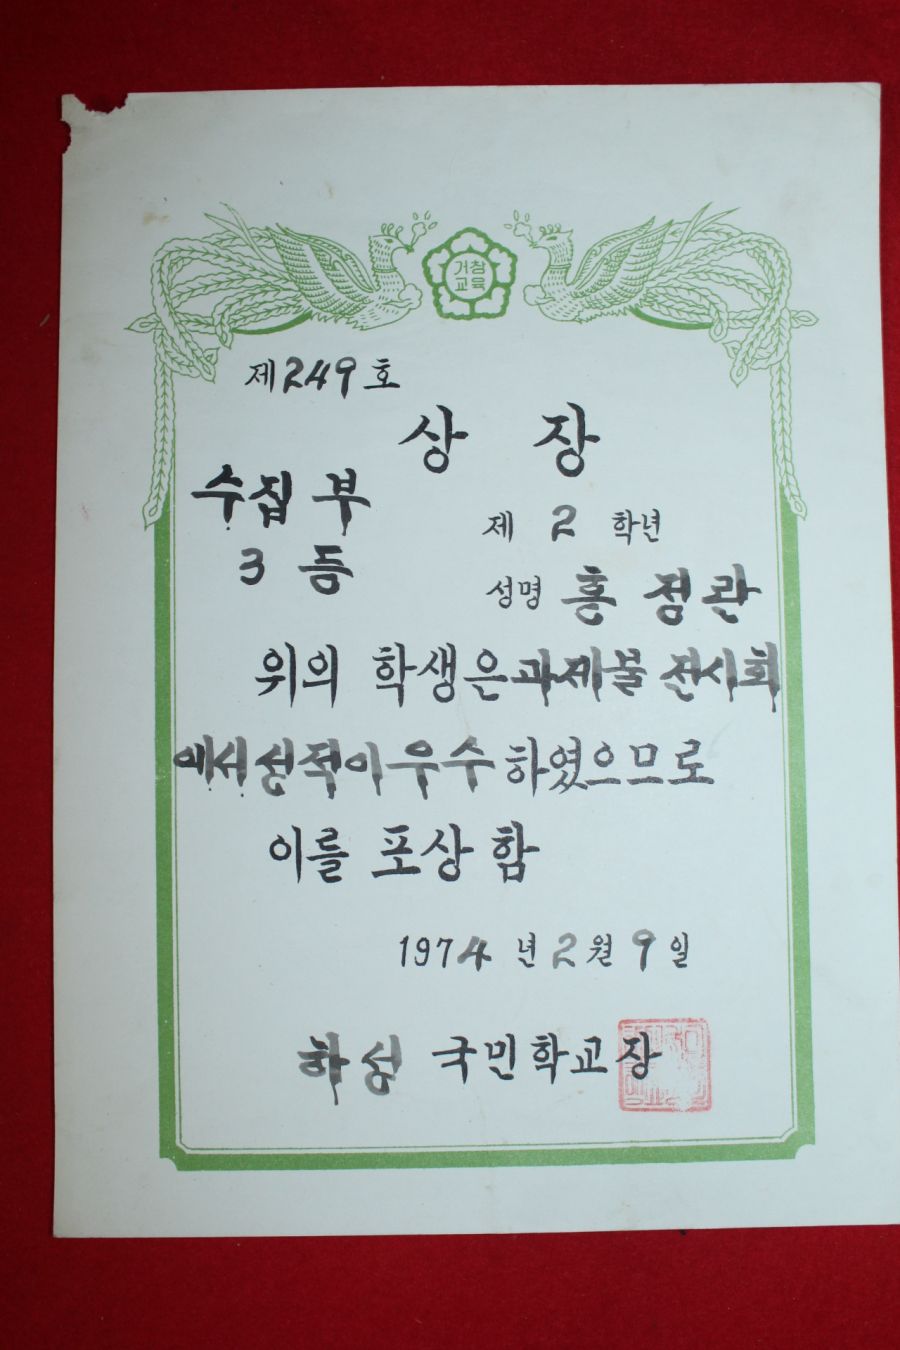 거창
교육
제249호
상 장
수집부
3 등
제 2 학년
성명 홍정관
위의 학생은 과제물 전시회
에서 성적이 우수 하였으므로
이를 포상 함
1974 년 2 월 9 일
하성 국민학교장